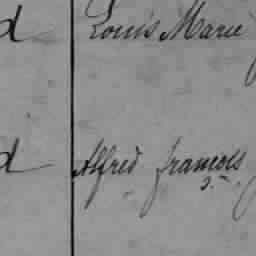 d Louis Marie
d Alfred françois